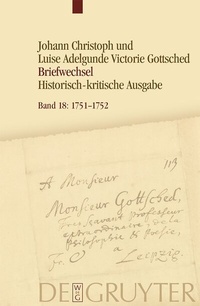 Johann Christoph und
Luise Adelgunde Victorie Gottsched
Briefwechsel
Historisch-kritische Ausgabe
Band 18: 1751–1752
113
A Monsieur
Monsieur Gottsched,
Professeur
extraordinaire, de la
Philosophie & Poesie,
Fr. C
à
Leipzig
DE GRUYTER